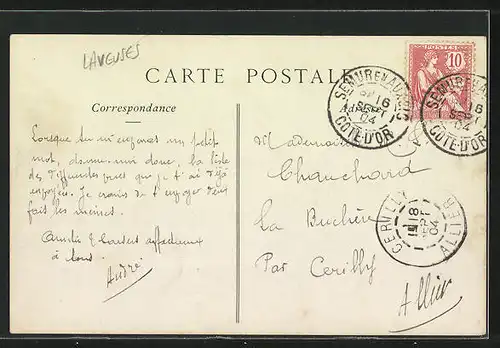 LAVEUSES
CARTE POSTALE
Correspondance
Adresse
10
SEMUR EN AUXOIS
16
SEPT
04
COTE-D'OR
SEMUR EN AUXOIS
16
SEPT
04
COTE-D'OR
Lorsque tu m'enverras un petit
mot, donne-moi donc, la liste
des différentes que je t'ai déjà
envoyées. Je crains de t'envoyer deux
fois les mêmes.
Amitiés & affectueux
à tous.
André
Mademoiselle
Chauchard
La Buchère
Par Cerilly
Allier
CERILLY
18
SEPT
04
ALLIER